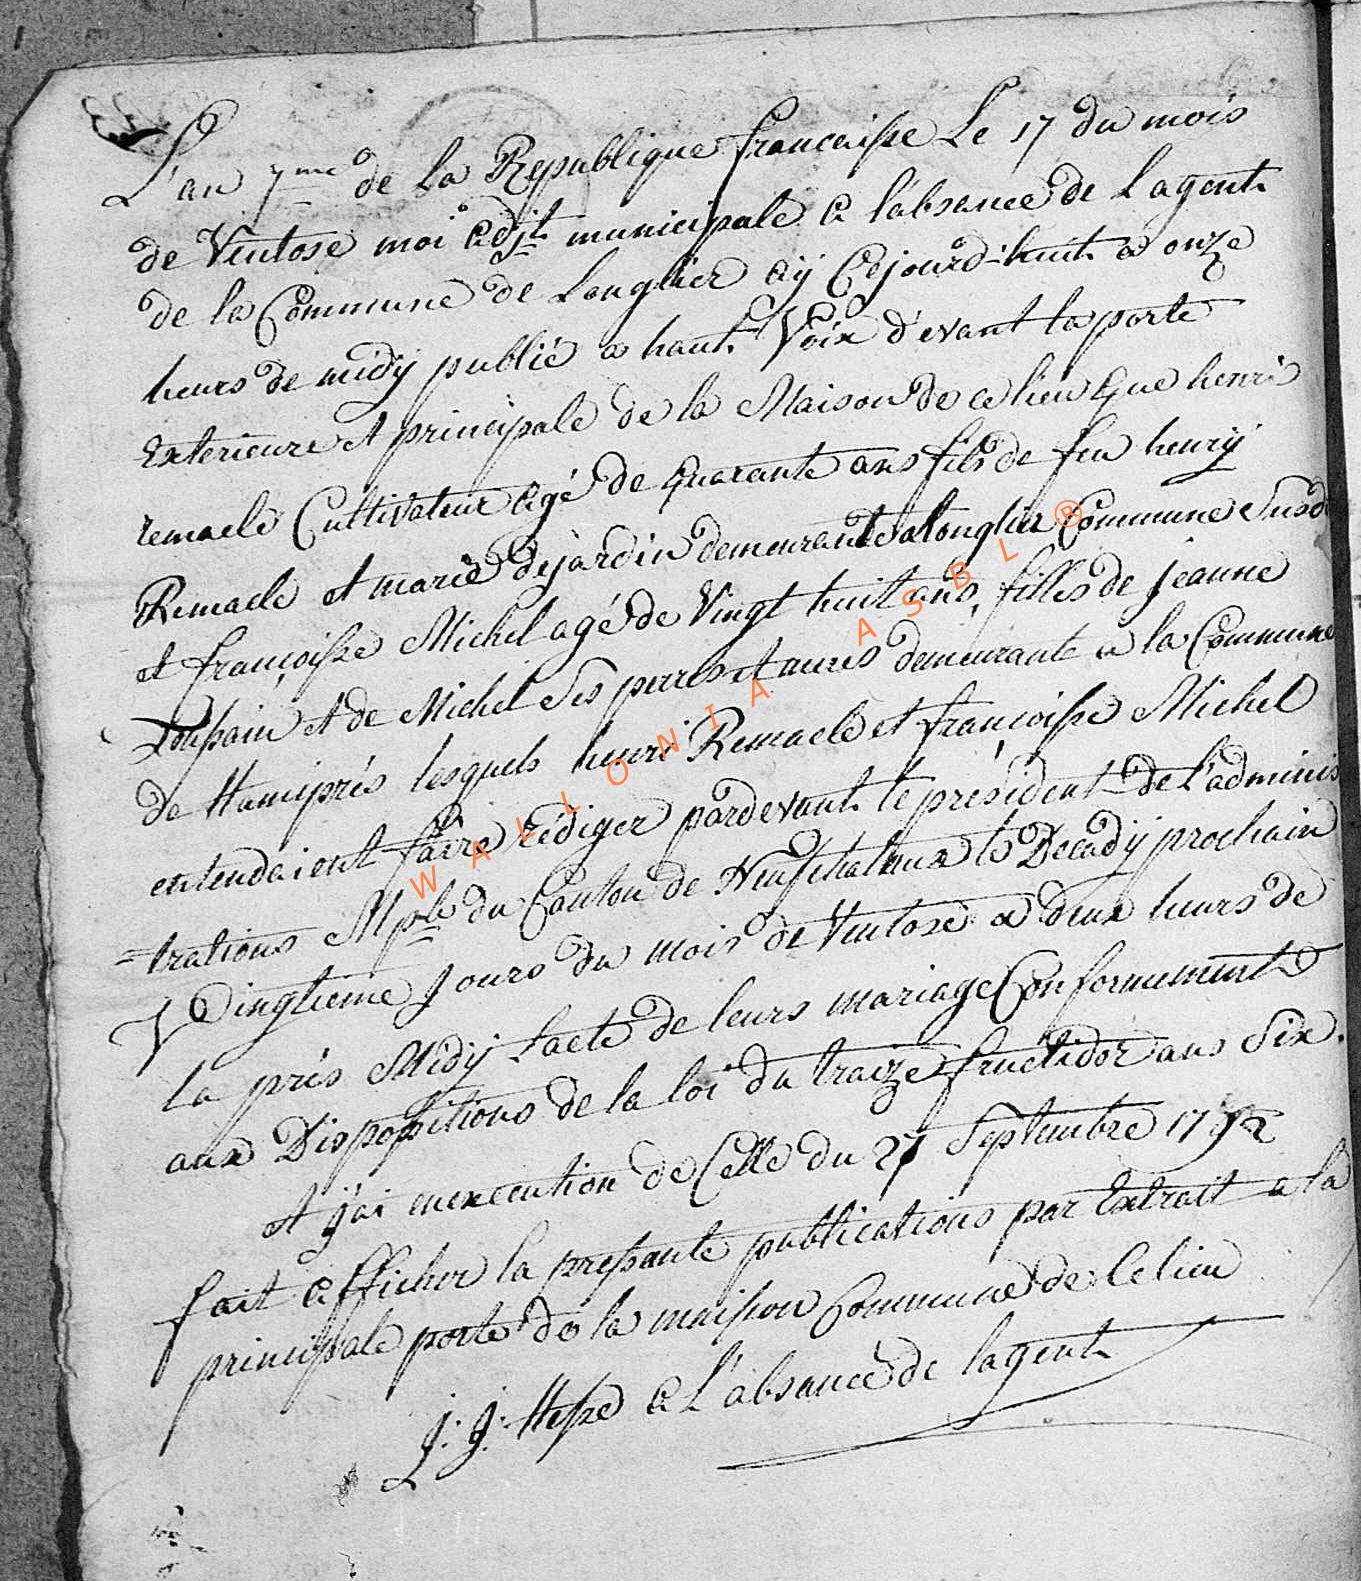 L'an 7me de la Republique francaisse Le 17 du mois
de Ventose moi adjt municipale a l'absance de Lagent
de la Commune de Longlier aÿ Cejourd-huit a onze
heurs de midÿ publié a haut Voix d'evant la porte
Exterieure et principale de la Maison de ce lieu Que henri
remacle Cultivateur agé de Quarante ans fils de feu henrÿ
Remacle et marie dejardin demeurant a longlier Commune Susd
et françoisse Michel agé de Vingt huit ans, filles de jeanne
Toussain et de Michel Ses perres et meres demeurante a la Commune
de Hamipres lesquels henri Remacle et françoisse Michel
entendaient faire rédiger pardevant le president de l'adminis
-trations Mple du Canton de Neufchateaux le Decadÿ prochain
Vingtieme jours du mois de Ventose a deux heurs de
la prés Midÿ Lacte de leurs mariage Conformement
aux Dispositions de la loi du traize fructidor ans Six.
et j'ai enexecution de Celle du 27 Septembre 1792
fait afficher la pressante publications par Extrait a la
principale porte de la maisson Commune de Celieu
J. J. Hesse a L'absance de lagent
WALLONIA ASBL ®